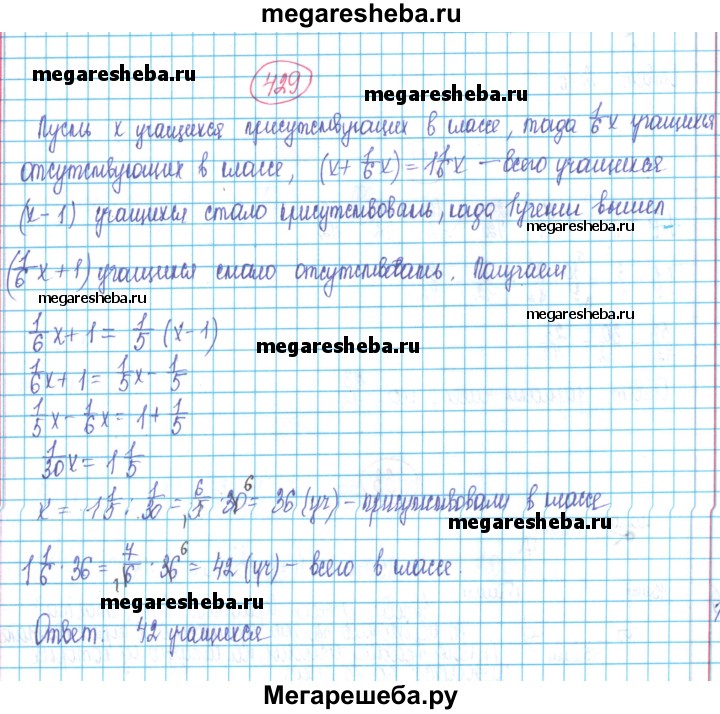 megaresheba.ru
megaresheba.ru
429
megaresheba.ru
Пусть x учащихся присутствующих в классе, тогда 1/6 x учащихся
отсутствующих в классе, (x + 1/6 x) = 1 1/6 x — всего учащихся
(x - 1) учащихся стало присутствовать, когда 1 ученик вышел
megaresheba.ru
(1/6 x + 1) учащихся стало отсутствовать. Получаем
megaresheba.ru
megaresheba.ru
1/6 x + 1 = 1/5 (x - 1)
megaresheba.ru
1/6 x + 1 = 1/5 x - 1/5
1/5 x - 1/6 x = 1 + 1/5
1/30 x = 1 1/5
x = 1 1/5 : 1/30 = 6/5 · 30 = 36 (уч) - присутствовали в классе
megaresheba.ru
1 1/6 · 36 = 7/6 · 36 = 42 (уч) - всего в классе.
megaresheba.ru
megaresheba.ru
Ответ: 42 учащихся
Мегарешеба.ру